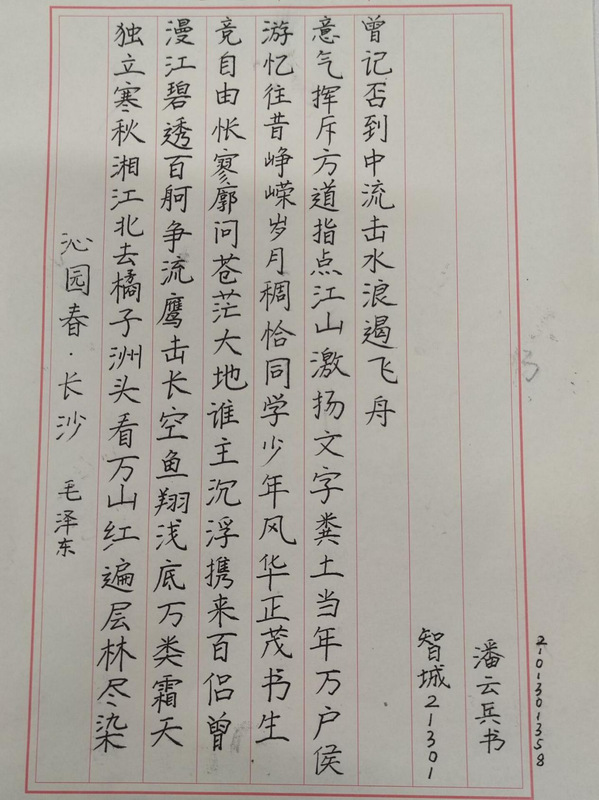 沁园春·长沙 毛泽东
独立寒秋湘江北去橘子洲头看万山红遍层林尽染
漫江碧透百舸争流鹰击长空鱼翔浅底万类霜天
竞自由怅寥廓问苍茫大地谁主沉浮携来百侣曾
游忆往昔峥嵘岁月稠恰同学少年风华正茂书生
意气挥斥方道指点江山激扬文字粪土当年万户侯
曾记否到中流击水浪遏飞舟
智城21301
潘云兵书
2101301358